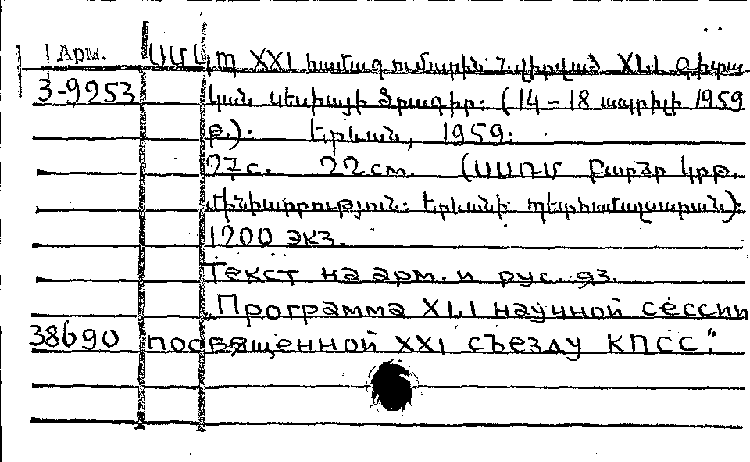 Арм. ՍՄԿՊ XXI համագումարին նվիրված XLI գիտա
3-9953 կան սեսիայի ծրագիր: (14-18 ապրիլի 1959
թ.): Երևան, 1959:
27с. 22см. (ՍՍՌՄ Բարձր կրթ.
մինիստրություն: Երևանի պետհամալսարան):
1200 экз.
Текст на арм. и рус. яз.
„Программа XLI научной сессии
38690 посвященной XXI съезду КПСС."